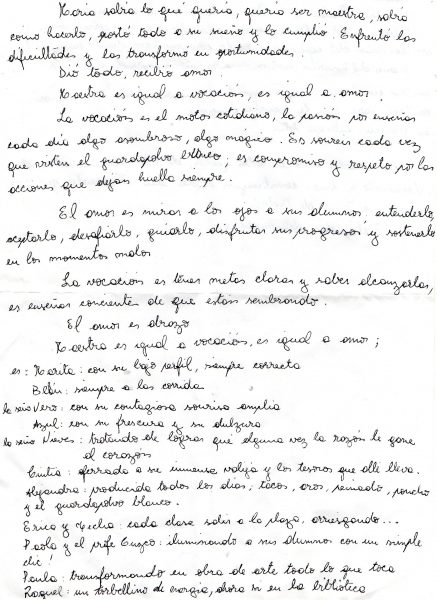 María sabía lo que quería, quería ser maestra, sabía
como hacerlo, apostó todo a su sueño y lo cumplió. Enfrentó las
dificultades y las transformó en oportunidades.
Dió todo, recibió amor.
Maestra es igual a vocación, es igual a amor.
La vocación es el motor cotidiano, la pasión por enseñar
cada día algo asombroso, algo mágico. Es sonreir cada vez
que visten el guardapolvo blanco, es compromiso y respeto por las
acciones que dejan huella siempre.
El amor es mirar a los ojos a sus alumnos, entenderlo,
aceptarlo, desafiarlo, guiarlo, disfrutar sus progresos y sostenerlo
en los momentos malos
La vocación es tener metas claras y saber alcanzarlas,
es enseñar conciente de que están sembrando.
El amor es abrazo
Maestra es igual a vocación, es igual a amor;
es: Marita: con su bajo perfil, siempre correcta
Belén: siempre a las corrida
la seño Vero: con su contagiosa sonrisa amplia
Azul: con su frescura y su dulzura
la seño Nieves: tratando de lograr que alguna vez la razón le gane
al corazón
Emilia: aferrada a su inmensa valija y los tesoros que allí lleva.
Alejandra: producida todos los días, tacos, aros, peinado, poncho
y el guardapolvo blanco.
Erica y Techa: cada clase salir a la plaza, arriesgando...
Paola y el profe Cuzco: iluminando a sus alumnos con un simple
clic!
Paula: transformando en obra de arte todo lo que toca
Raquel: un torbellino de energía, ahora si en la biblioteca